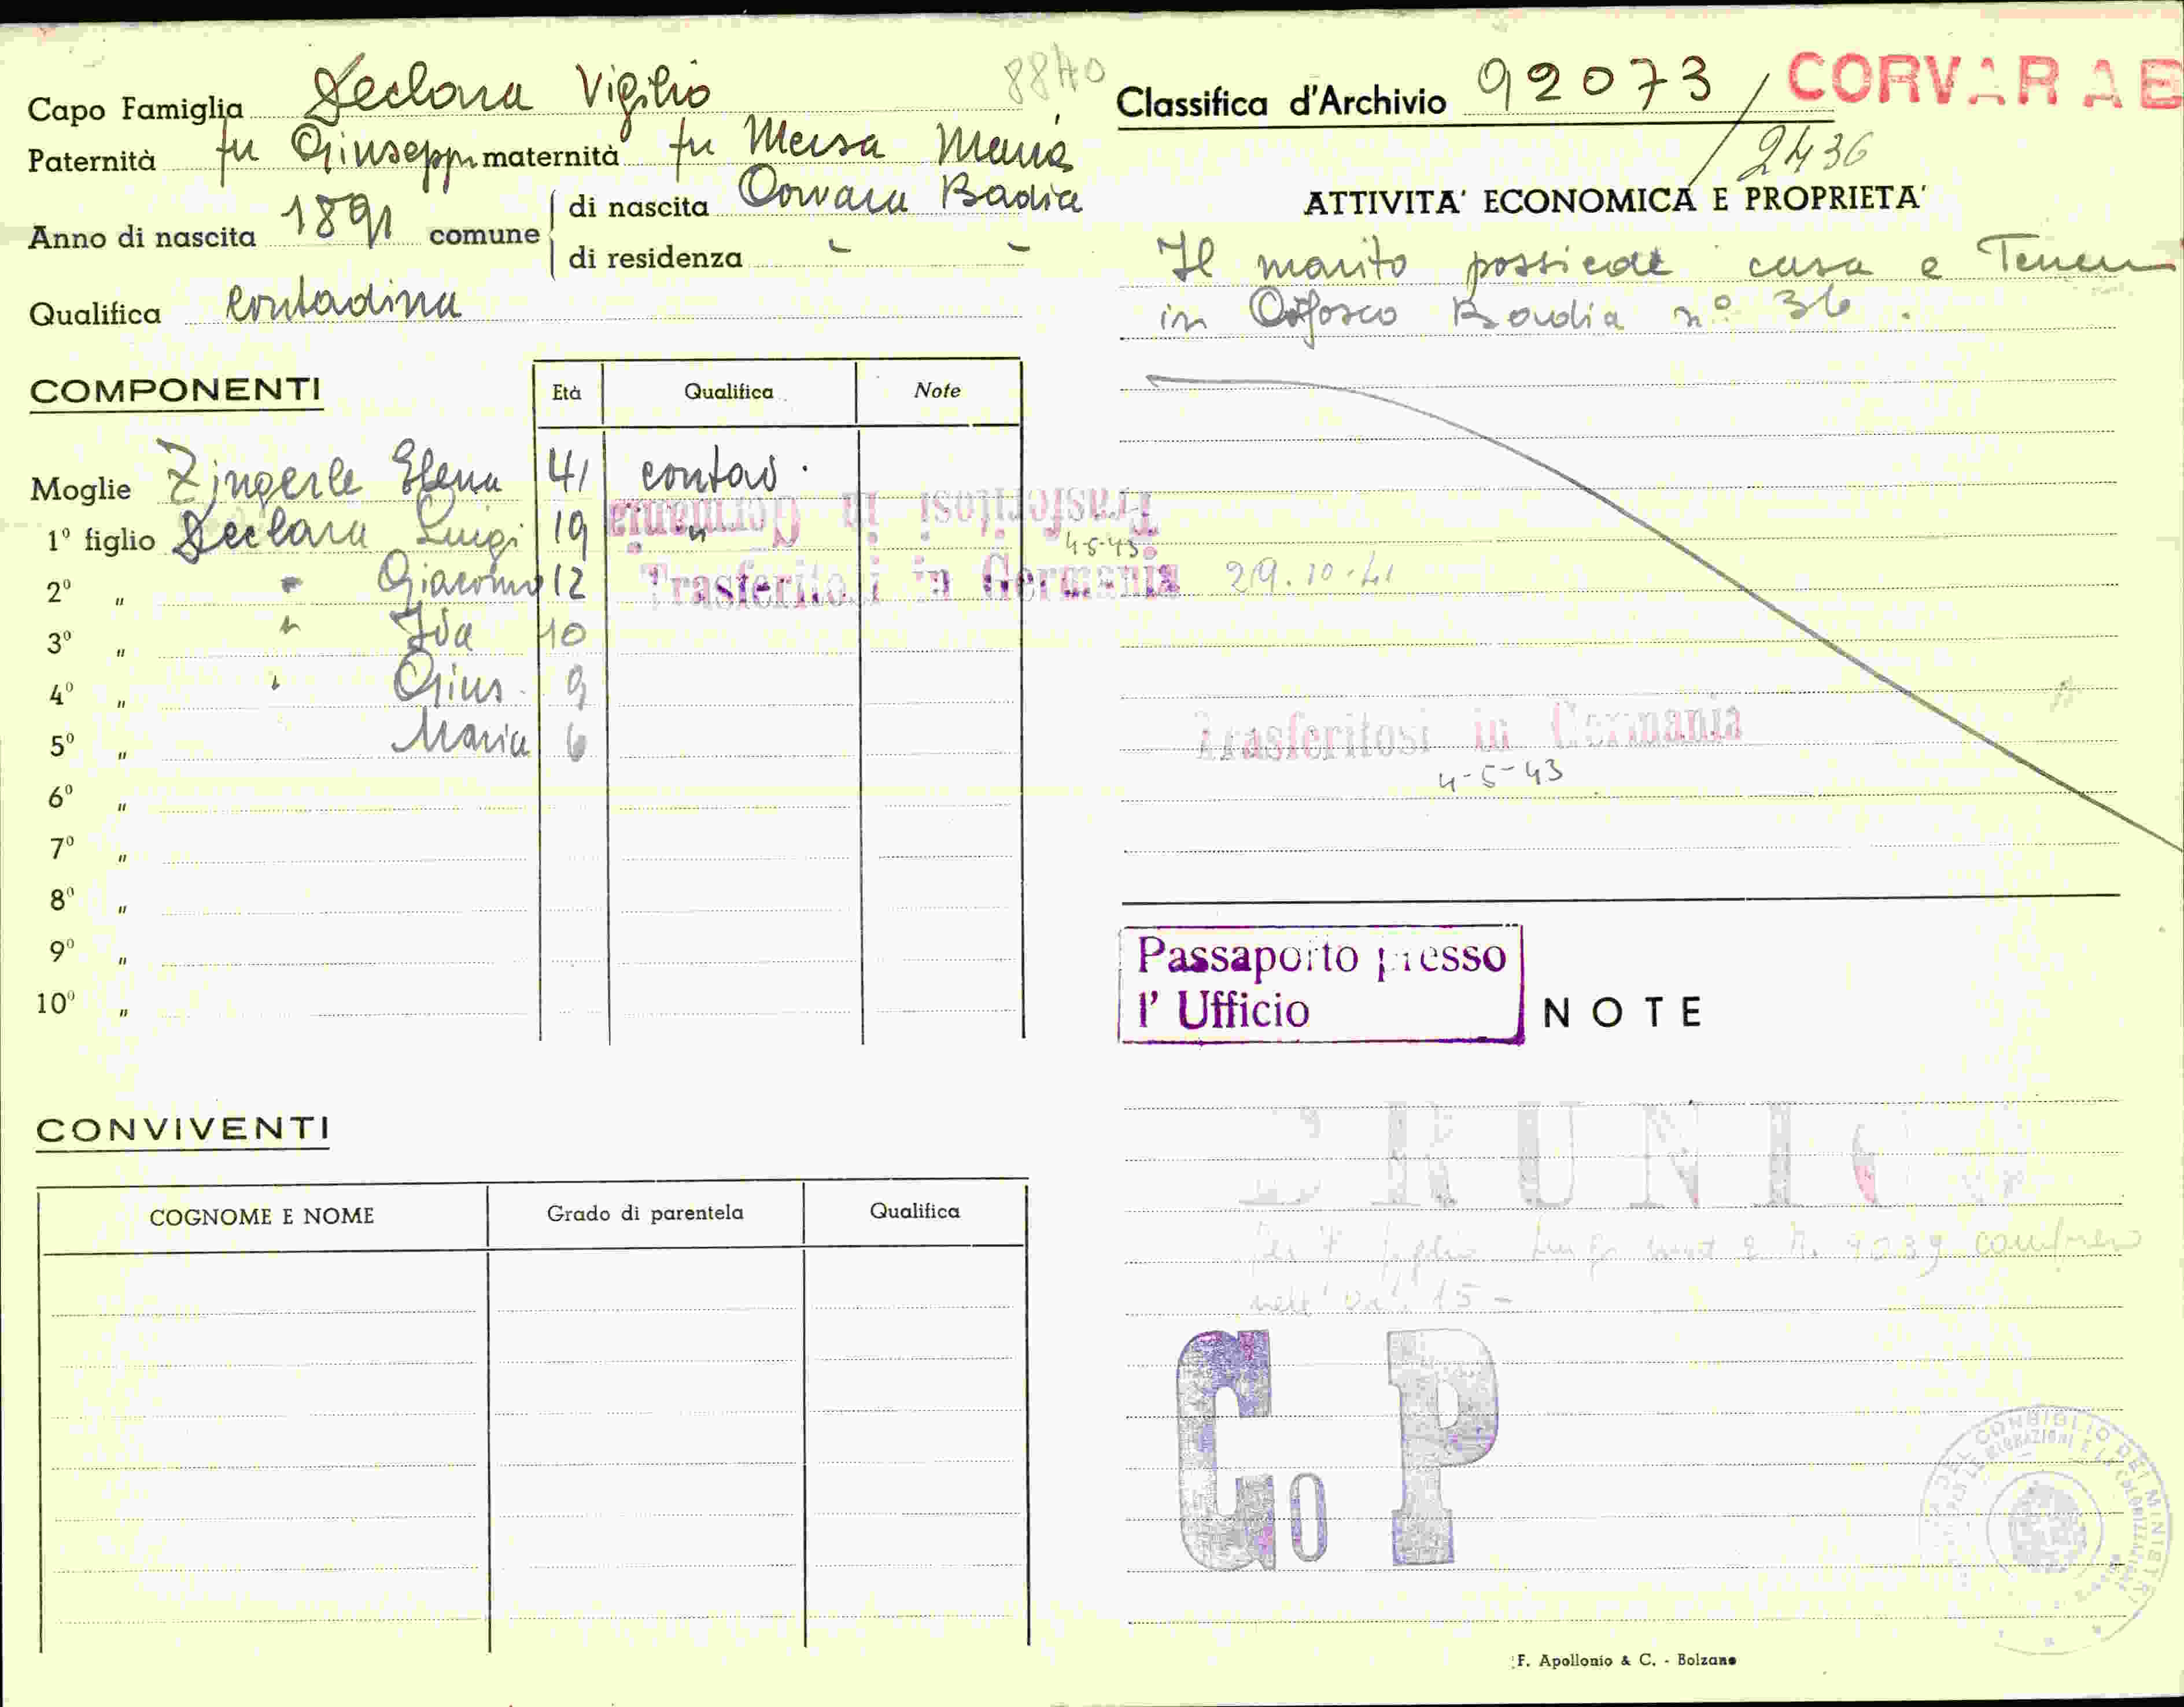 Capo Famiglia Declara Vigilio 8840
Paternità fu Giuseppe maternità fu Mersa Maria
Anno di nascita 1891 comune di nascita Corvara Badia
di residenza " "
Qualifica contadina
COMPONENTI
Età Qualifica Note
Moglie Zingerle Elena 41 contad.
1º figlio Declara Luigi 19 "
Trasferitosi in Germania
4-5-43
2º " " Giacomo 12 Trasferitosi in Germania 29.10.41
3º " " Ida 10
4º " " Gius. 9
5º " Maria 6
6º "
7º "
8º "
9º "
10º "
CONVIVENTI
COGNOME E NOME Grado di parentela Qualifica
Classifica d'Archivio 92073 / CORVARA B
2436
ATTIVITA' ECONOMICA E PROPRIETA'
Il marito possiede casa e
in Colfosco Badia nº 36.
Trasferitosi in Germania
4-5-43
Passaporto presso
l' Ufficio
NOTE
BRUNIC
figlio
15 -
Go P
DEL CONSIGLIO DEI MINISTRI
F. Apollonio & C. - Bolzano